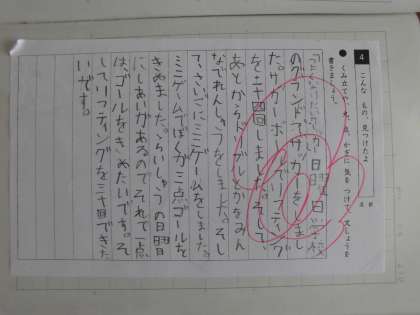 4 こんな もの、見つけたよ
● くみ立てや、丸、点、かぎに 気を つけて、文しょうを
書きましょう。
日曜日、学校
のグランドでサッカーをしまし
た。サッカーボールでリフティング
を二十四回しました。そして、
あとからドリブルとかをみん
なでれんしゅうをしました。そし
て、さいごにミニゲームをしました。
ミニゲームでぼくが三点、ゴールを
きめました。らいしゅうの日曜日
にしあいがあるので、それで一点
は、ゴールをきめたいです。そ
してリフティングを三十回できた
いです。